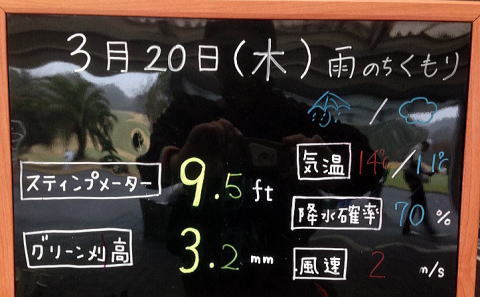 3月20日(木) 雨のちくもり
気温 14℃/11℃
スティンプメーター 9.5 ft
降水確率 70 %
グリーン刈高 3.2 mm
風速 2 m/s